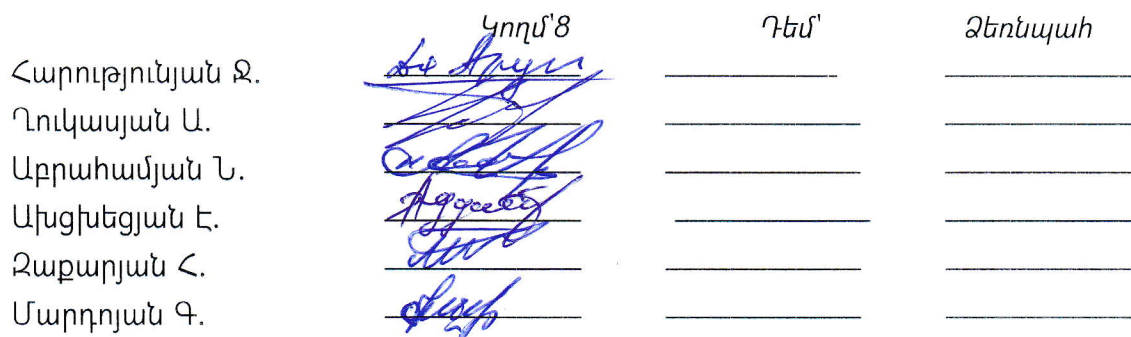 Կողմ՝8 Դեմ՝ Ձեռնպահ
Հարությունյան Ջ.
Ղուկասյան Ա.
Աբրահամյան Ն.
Ախցխեցյան Է.
Զաքարյան Հ.
Մարդոյան Գ.